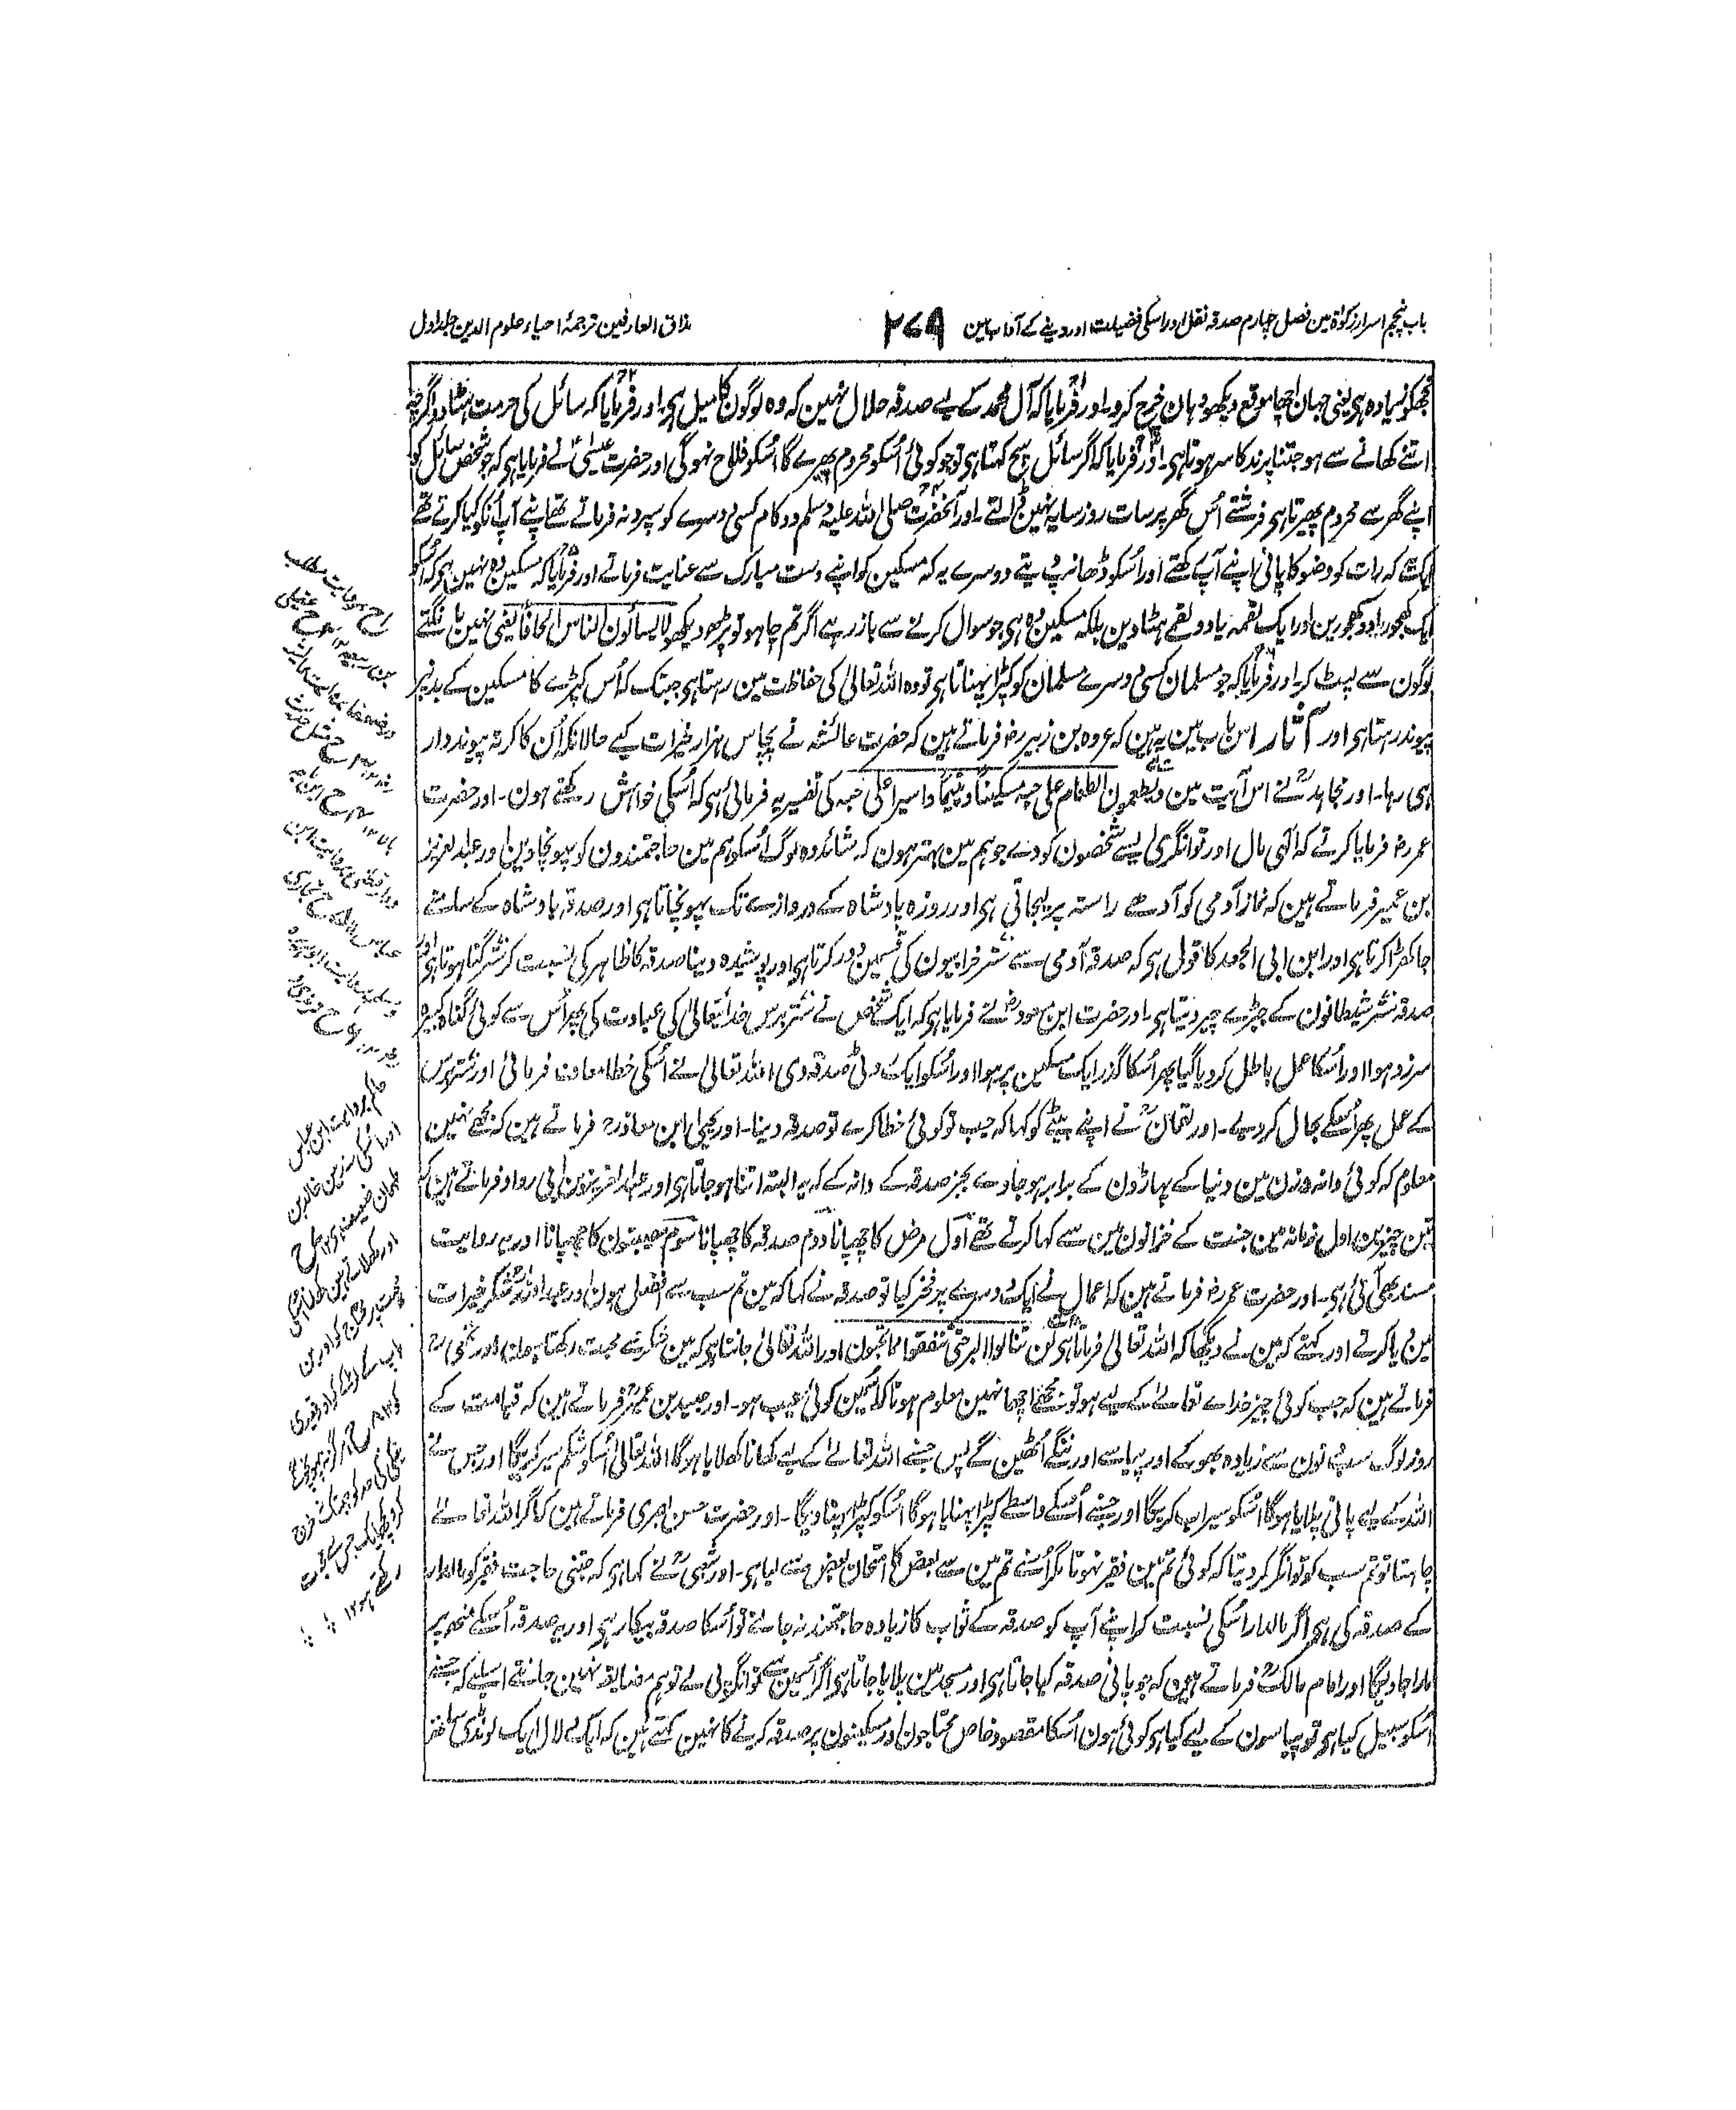 باب پنجم اسرار زکوٰۃ مین فصل چہارم صدقہ نفل اور اسکی فضیلت اور دینے کے آداب مین
۲۷۹
مذاق العارفین ترجمۂ احیاء علوم الدین جلد اول
مجھکو زیادہ ہی یعنی جہان اچھا موقع دیکھو وہان خرچ کرو۔ اور فرمایا کہ آل محمد کے لیے صدقہ حلال نہین کہ وہ لوگون کا میل ہی۔ اور فرمایا کہ سائل کی حرمت ہٹا دو اگرچہ
اتنے کھانے سے ہو جتنا پرند کا سر ہوتا ہی۔ اور فرمایا کہ اگر سائل سچ کہتا ہی تو جو کوئی اُسکو محروم پھیرے گا اُسکو فلاح نہوگی اور حضرت عیسیٰؑ نے فرمایا ہی کہ جو شخص سائل کو
اپنے گھر سے محروم پھیرتا ہی فرشتے اُس گھر پر سات روز سایہ نہین ڈالتے۔ اور آنحضرت صلی اللہ علیہ وسلم دو کام کسی دوسرے کو سپرد نہ فرماتے تھے اپنے آپ اُنکو کیا کرتے تھے
ایک تو کہ رات کو وضو کا پانی اپنے آپ رکھتے اور اُسکو ڈھانپ دیتے دوسرے یہ کہ مسکین کو اپنے دست مبارک سے عنایت فرماتے اور فرمایا کہ مسکین وہ نہین ہی کہ اُسکو
ایک کھجور اور دو کھجورین اور ایک لقمہ یا دو لقمے ہٹا دین بلکہ مسکین وہ ہی جو سوال کرنے سے باز رہے اگر تم چاہو تو پڑھ دیکھو لا یسألون الناس الحافا یعنی نہین مانگتے
لوگون سے لپٹ کر۔ اور فرمایا کہ جو مسلمان کسی دوسرے مسلمان کو کپڑا پہناتا ہی تو وہ اللہ تعالیٰ کی حفاظت مین رہتا ہی جبتک کہ اُس کپڑے کا مسکین کے بدن پر
پیوند رہتا ہی اور آثار اس باب مین یہ ہین کہ عروہ بن زبیر رضہ فرماتے ہین کہ حضرت عائشہ نے پچاس ہزار خیرات کیے حالانکہ اُن کا کرتہ پیوند دار
ہی رہا۔ اور مجاہدؒ نے اس آیت مین ویطعمون الطعام علی حبہ مسکینا ویتیما واسیرا علی حبہ کی تفسیر یہ فرمائی ہی کہ اُسکی خواہش رکھتے ہون۔ اور حضرت
عمر رضہ فرمایا کرتے کہ الٰہی مال اور توانگری ایسے شخصون کو دے جو ہم مین بہتر ہون کہ شائد وہ لوگ اُسکو ہم مین حاجتمندون کو پہونچا دین اور عبد العزیز
بن عمیر فرماتے ہین کہ نماز آدمی کو آدھے راستہ پر لیجاتی ہی اور روزہ پادشاہ کے دروازے تک پہونچاتا ہی اور صدقہ پادشاہ کے سامنے
جا کھڑا کرتا ہی اور ابن ابی الجعد کا قول ہی کہ صدقہ آدمی سے ستر خرابیون کی قسمین دور کرتا ہی اور پوشیدہ دینا صدقہ کا ظاہر کی نسبت کر ستر گنا ہوتا ہی اور
صدقہ ستر شیطانون کے جبڑے چیر دیتا ہی۔ اور حضرت ابن مسعودؓ نے فرمایا ہی کہ ایک شخص نے ستر برس خدا تعالیٰ کی عبادت کی پھر اُس سے کوئی گناہ کبیرہ
سرزد ہوا اور اُسکا عمل باطل کر دیا گیا پھر اُسکا گذر ایک مسکین پر ہوا اور اُسکو ایک روٹی صدقہ دی اللہ تعالیٰ نے اُسکی خطا معاف فرمائی اور ستر برس
کے عمل پھر اُسکے بحال کر دیے۔ اور لقمانؑ نے اپنے بیٹے کو کہا کہ جب تو کوئی خطا کرے تو صدقہ دینا۔ اور یحییٰ ابن معاذ رح فرماتے ہین کہ مجھے نہین
معلوم کہ کوئی دانہ وزن مین دنیا کے پہاڑون کے برابر ہو جاوے بجز صدقہ کے دانہ کے کہ یہ البتہ اتنا ہو جاتا ہی اور عبد العزیز بن ابی رواد فرماتے ہین کہ
تین چیزین اول زمانہ مین جنت کے خزانون مین سے کہا کرتے تھے اول مرض کا چھپانا دوم صدقہ کا چھپانا سوم مصیبتون کا چھپانا اور یہ روایت
مسند بھی آئی ہی۔ اور حضرت عمر رضہ فرماتے ہین کہ اعمال نے ایک دوسرے پر فخر کیا تو صدقہ نے کہا کہ مین تم سب سے افضل ہون اور عبد اللہؓ شکر خیرات
مین دیا کرتے اور کہتے کہ مین نے دیکھا کہ اللہ تعالیٰ فرماتا ہی لن تنالوا البر حتیٰ تنفقوا مما تحبون اور اللہ تعالیٰ جانتا ہی کہ مین شکر سے محبت رکھتا ہون اور نخعی رح
فرماتے ہین کہ جب کوئی چیز خداے تعالےٰ کے لیے ہو تو مجھے اچھا نہین معلوم ہوتا کہ اُسمین کوئی عیب ہو۔ اور عبید بن عمیرؒ فرماتے ہین کہ قیامت کے
روز لوگ سب دنون سے زیادہ بھوکے اور پیاسے اور ننگے اُٹھین گے پس جسنے اللہ تعالےٰ کے لیے کھانا کھلایا ہوگا اللہ تعالیٰ اُسکو شکم سیر کریگا اور جس نے
اللہ کے لیے پانی پلایا ہوگا اُسکو سیراب کریگا اور جسنے اُسکے واسطے کپڑا پہنایا ہوگا اُسکو کپڑا پہنا دیگا۔ اور حضرت حسن بصری فرماتے ہین کہ اگر اللہ تعالےٰ
چاہتا تو تم سب کو توانگر کر دیتا کہ کوئی تم مین فقیر نہوتا مگر اُسنے تم مین سے بعض کا امتحان بعض سے لیا ہی۔ اور شعبیؒ نے کہا ہی کہ جتنی حاجت فقیر کو مالدار
کے صدقہ کی ہی اگر مالدار اُسکی نسبت کر اپنے آپ کو صدقہ کے ثواب کا زیادہ حاجتمند نہ جانے تو اُسکا صدقہ بیکار ہی اور یہ صدقہ اُسکے منھ پر
مارا جاویگا اور امام مالکؒ فرماتے ہین کہ جو پانی صدقہ کیا جاتا ہی اور مسجد مین پلایا جاتا ہی اگر اُسمین سے توانگر پی لے تو ہم مضایقہ نہین جانتے اسلیے کہ جسنے
اُسکو سبیل کیا ہی تو پیاسون کے لیے کیا ہی کوئی ہون اُسکا مقصود خاص محتاجون اور مسکینون پر صدقہ کرنے کا نہین کہتے ہین کہ ایک دلال ایک لونڈی ساتھ
حاکم بروایت ابن عباس
اور اسکی سند مین خالد بن
طہمان ضعیف ہی
اور کھلاتے ہین کھانا اُسکی
محبت پر محتاج کو اور بن
باپ کے لڑکے کو اور قیدی کو
ہرگز نہ پہونچوگے
نیکی کی حد کو جبتک نہ خرچ
کرو کچھ ایک جس سے محبت
رکھتے ہو ۱۲